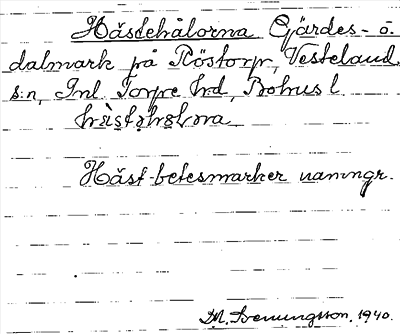 Hästehålorna Gärdes- o.
dalmark på Röstorp, Västerland
s:n, Inl. Torpe hd, Bohusl.
hästəhålorna
Häst-betesmarker namngr.
M. Bremingsson. 1940.